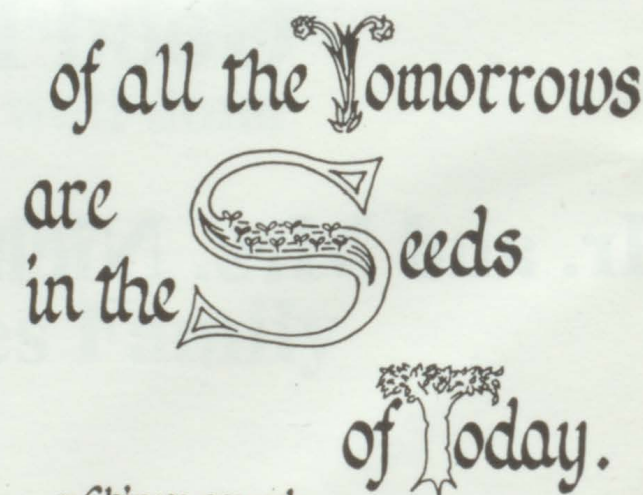 of all the Tomorrows
are
in the Seeds
of Today.